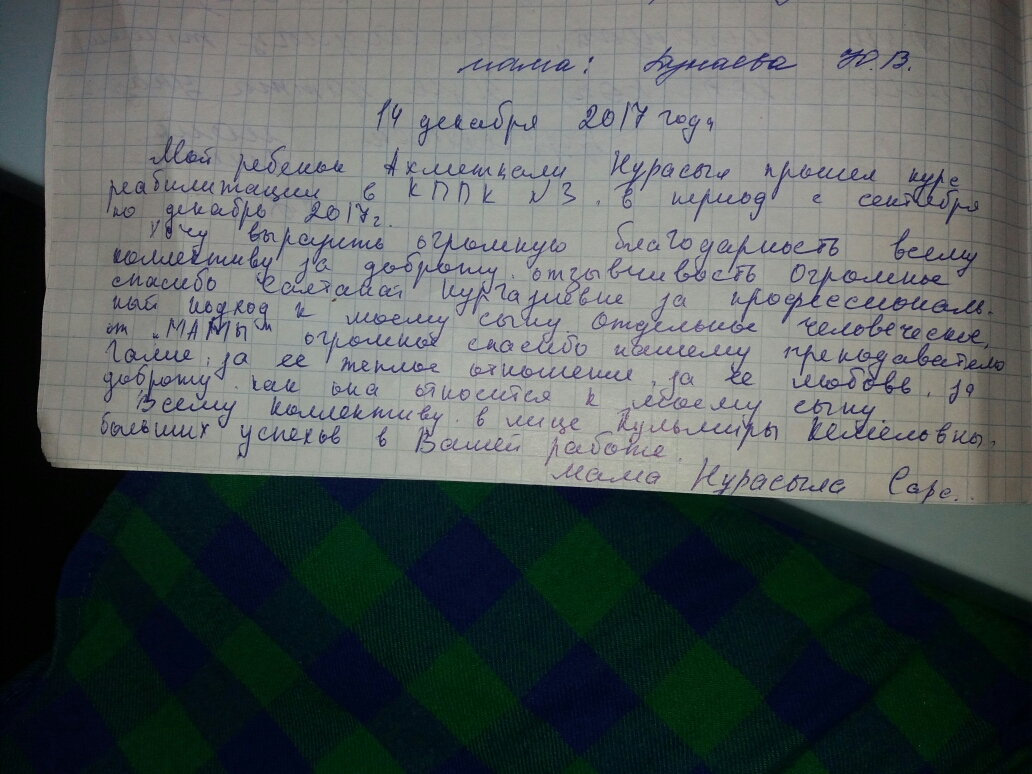 мама: Дунаева Ю.В.
14 декабря 2017 года
Мой ребенок Ахметкали Нурасыл прошел курс
реабилитации в КППК №3, в период с сентября
по декабрь 2017г.
Хочу выразить огромную благодарность всему
коллективу за доброту, отзывчивость Огромное
спасибо Салтанат Кургазиевне за профессиональ-
ный подход к моему сыну, отдельное человеческое,
от "МАМЫ" огромное спасибо нашему преподавателю
Галие, за ее теплое отношение, за ее любовь, за
доброту, как она относится к моему сыну.
Всему коллективу, в лице Кульмиры Кемеловны,
больших успехов в Вашей работе.
Мама Нурасыла